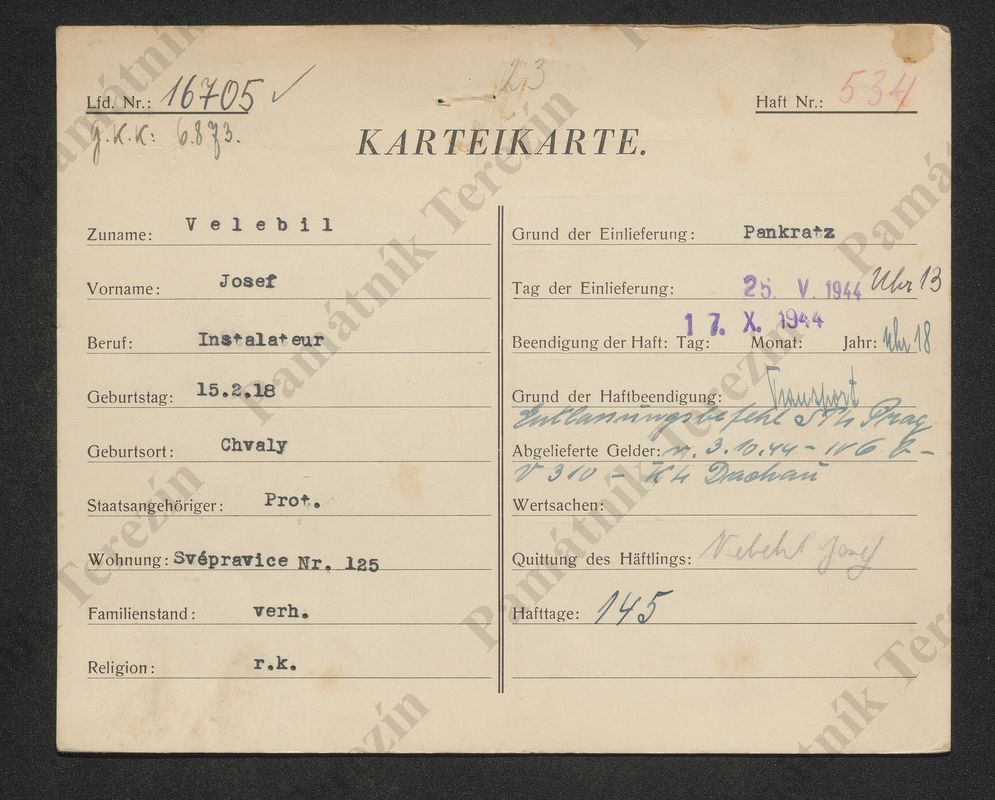 Lfd. Nr.: 16705 ✓
g.K.K: 6.873.
23
Haft Nr.: 534
KARTEIKARTE.
Zuname: Velebil
Vorname: Josef
Beruf: Instalateur
Geburtstag: 15.2.18
Geburtsort: Chvaly
Staatsangehöriger: Prot.
Wohnung: Svépravice Nr. 125
Familienstand: verh.
Religion: r.k.
Grund der Einlieferung: Pankratz
Tag der Einlieferung: 25. V. 1944 Uhr 13
17. X. 1944
Beendigung der Haft: Tag: Monat: Jahr: Uhr 18
Grund der Haftbeendigung: Transport
Entlassungsbefehl Prag
Abgelieferte Gelder: v. 3.10.44 - IV 6
V 310 - Dachau
Wertsachen:
Quittung des Häftlings: Josef
Hafttage: 145
Památník Terezín